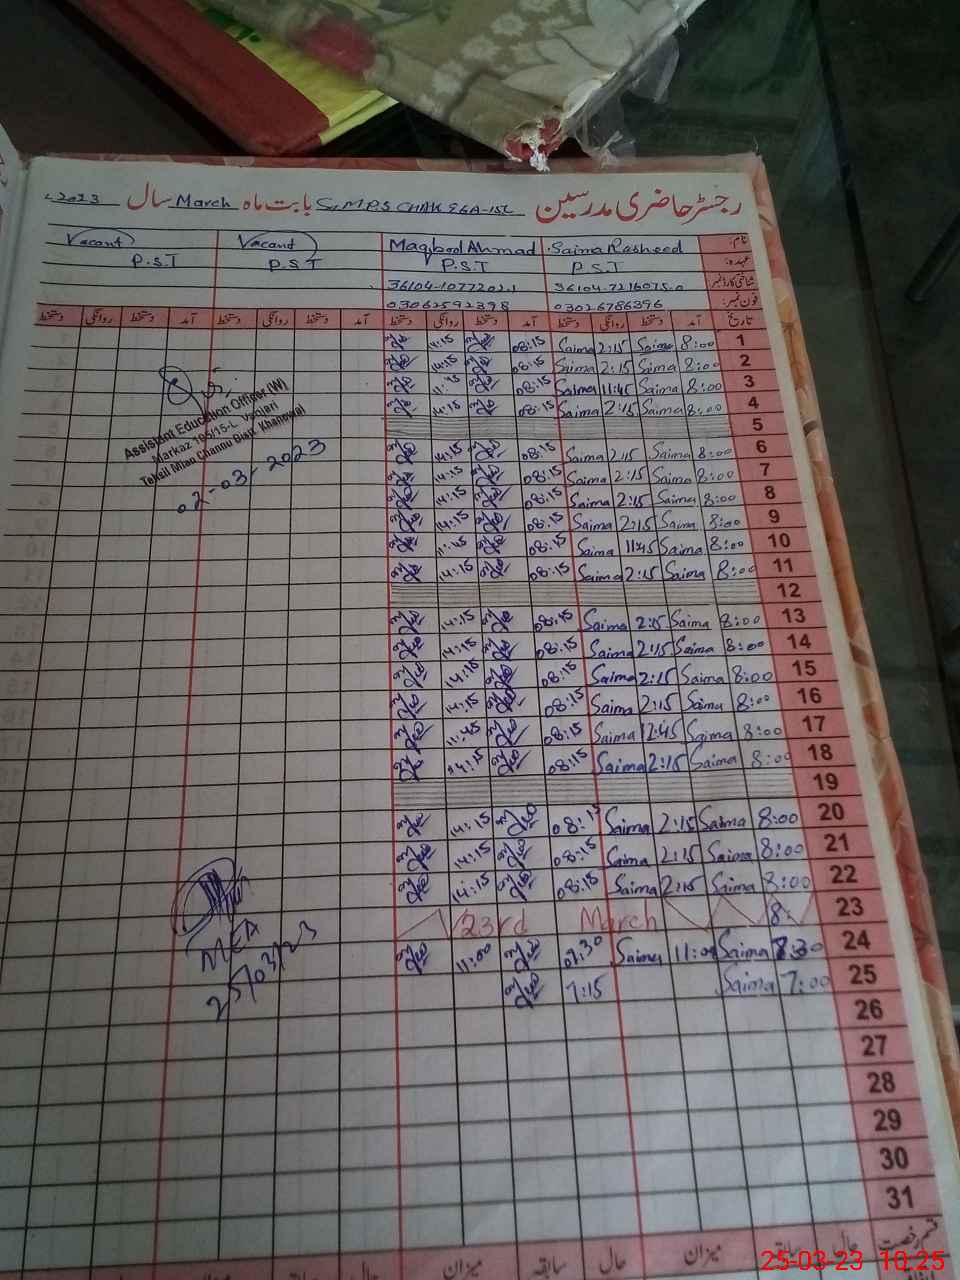 رجسٹر حاضری مدرسین G.M.P.S CHAK بابت ماہ March سال 2023
نام: Saima Rasheed Maqbool Ahmad Vacant Vacant
عہدہ: P.S.T P.S.T P.S.T P.S.T
شناختی کارڈ نمبر: 36104-7216075-0
فون نمبر: 03026786396 03062592398
تاریخ آمد دستخط روانگی دستخط آمد دستخط روانگی دستخط آمد دستخط روانگی دستخط آمد دستخط روانگی دستخط
1 8:00 Saima 2:15 Saima 08:15 14:15
2 8:00 Saima 2:15 Saima 08:15 14:15
3 8:00 Saima 11:45 Saima 08:15 11:45
4 8:00 Saima 2:15 Saima 08:15 14:15
5
6 8:00 Saima 2:15 Saima 08:15 14:15
7 8:00 Saima 2:15 Saima 08:15 14:15
8 8:00 Saima 2:15 Saima 08:15 14:15
9 8:00 Saima 2:15 Saima 08:15 14:15
10 8:00 Saima 11:45 Saima 08:15 11:45
11 8:00 Saima 2:15 Saima 08:15 14:15
12
13 8:00 Saima 2:15 Saima 08:15 14:15
14 8:00 Saima 2:15 Saima 08:15 14:15
15 8:00 Saima 2:15 Saima 08:15 14:15
16 8:00 Saima 2:15 Saima 08:15 14:15
17 8:00 Saima 12:45 Saima 08:15 11:45
18 8:00 Saima 2:15 Saima 08:15 14:15
19
20 8:00 Saima 2:15 Saima 08:15 14:15
21 8:00 Saima 2:15 Saima 08:15 14:15
22 8:00 Saima 2:15 Saima 08:15 14:15
23 8: 23rd March
24 Saima 11:00 Saima 11:00
25 7:00 Saima 7:15
26
27
28
29
30
31
قسم رخصت سابقہ حال میزان حال سابقہ میزان
Assistant Education Officer (W)
Markaz 105/15-L Vanjari
Tehsil Mian Channu Distt. Khanewal
02-03-2023
MEA
25/03/23
25-03-23 10:25